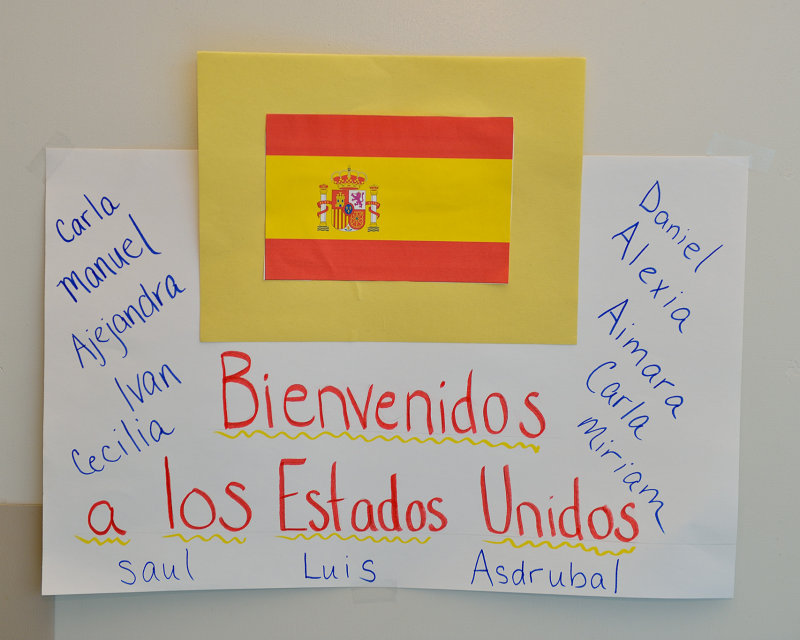 Carla
Manuel
Ajejandra
Ivan
Cecilia
Daniel
Alexia
Aimara
Carla
Miriam
Bienvenidos
a los Estados Unidos
Saul Luis Asdrubal